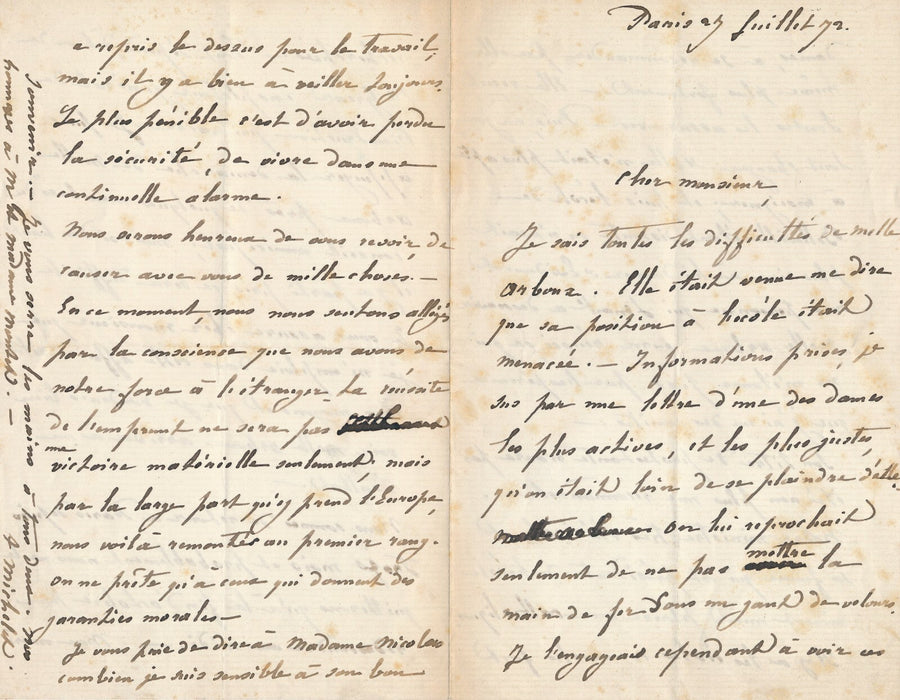 Paris 27 Juillet 72.
Cher monsieur
Je sais toutes les difficultés de melle
arboux. Elle était venue me dire
que sa position à l'école était
menacée. — Informations prises, je
sus par une lettre d'une des dames
les plus actives, et les plus justes,
qu'on était loin de se plaindre d'elle.
On lui reprochait
seulement de ne pas mettre la
main de fer sous un gant de velours.
Je l'engageais cependant à voir ces
a repris le dessus pour le travail,
mais il y a bien à veiller toujours.
Le plus pénible c'est d'avoir perdu
la sécurité, de vivre dans une
continuelle alarme.
Nous serons heureux de vous revoir, de
causer avec vous de mille choses. —
En ce moment nous nous sentons allégés
par la conscience que nous avons de
notre force à l'étranger. La réussite
de l'emprunt ne sera pas
une
victoire matérielle seulement; mais
par la large part qu'y prend l'Europe,
nous voilà remontés au premier rang.
on ne prête qu'à ceux qui donnent des
garanties morales —
Je vous prie de dire à Madame Nicolas
combien je suis sensible à son bon
souvenir. — Je vous serre les mains à tous deux. nos
hommages à madame —
J Michelet.